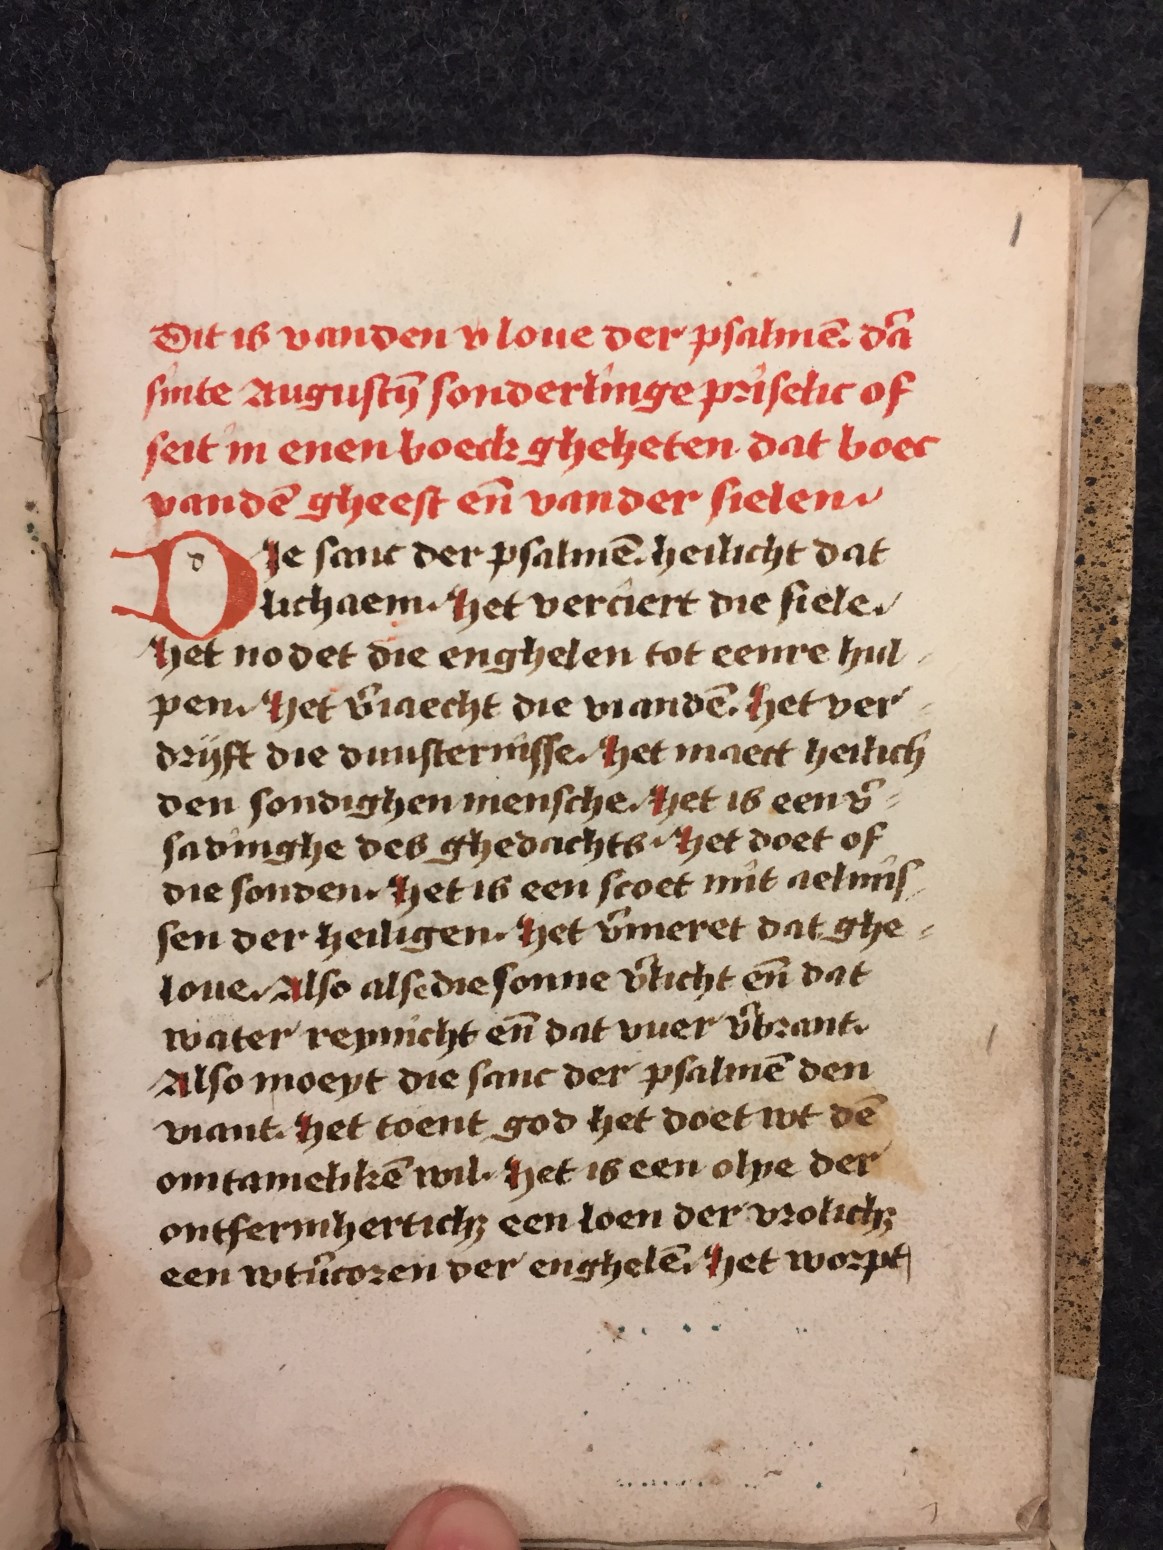 1
Dit is vanden v loue der psalmē. dʼā
sinte Augustȳ sonderlinge priselic of
seit in enen boeck gheheten. dat boec
vandē gheest en̄ vander sielen.
Die sanc der psalmē. heilicht dat
lichaem. Het verciert die siele.
Het nodet die enghelen tot eenre hul-
pen. Het v̄iaecht die viandē. Het ver-
drijft die duusternisse. Het maect heilich
den sondighen mensche. Het is een v̄-
sadinghe des ghedachts. Het doet of
die sonden. Het is een scoet mit aelmis-
sen der heiligen. Het v̄meret dat ghe-
loue. Also alse die sonne v̄licht en̄ dat
water reynicht en̄ dat vuer v̄brant.
Also moeyt die sanc der psalmē den
viant. Het toent god het doet wt dē
ontamelikē wil. Het is een olye der
ontfermhertichꝫ een loen der vrolichꝫ
een wtv̄coren der enghelē. Het worpt